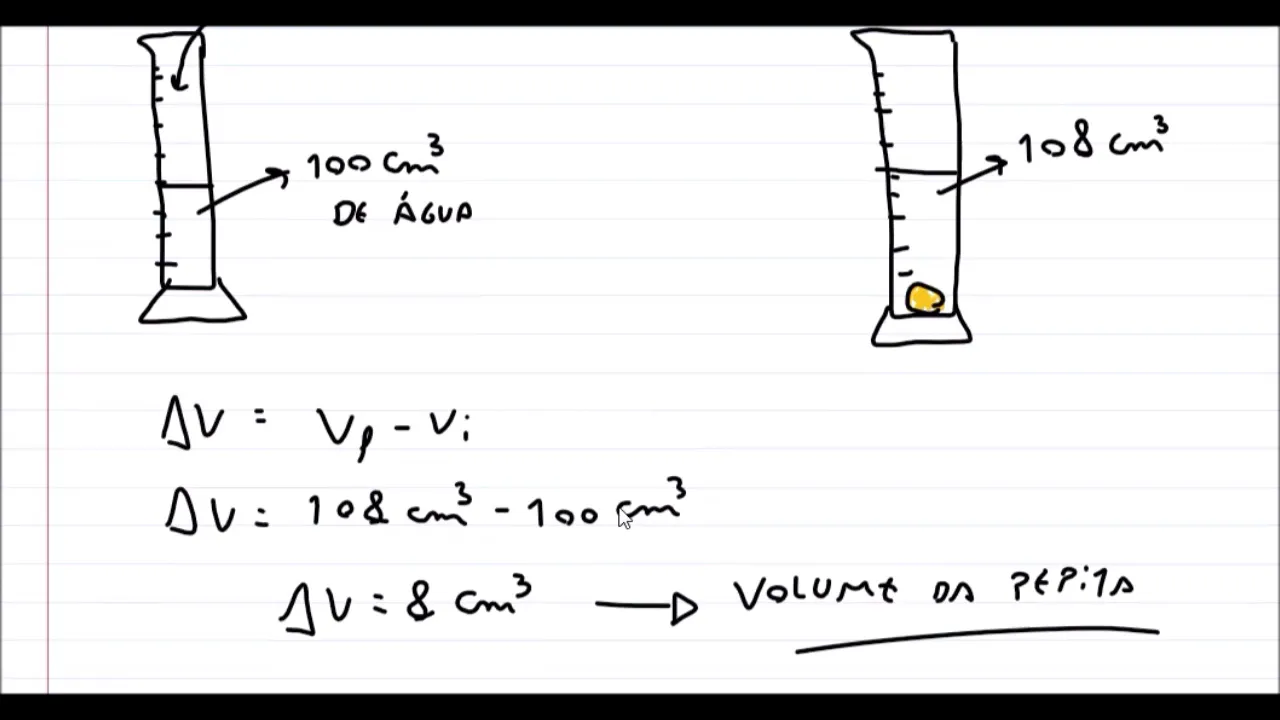 100 cm³
DE ÁGUA
108 cm³
ΔV = Vf - Vi
ΔV = 108 cm³ - 100 cm³
ΔV = 8 cm³ → VOLUME DA PEPITA